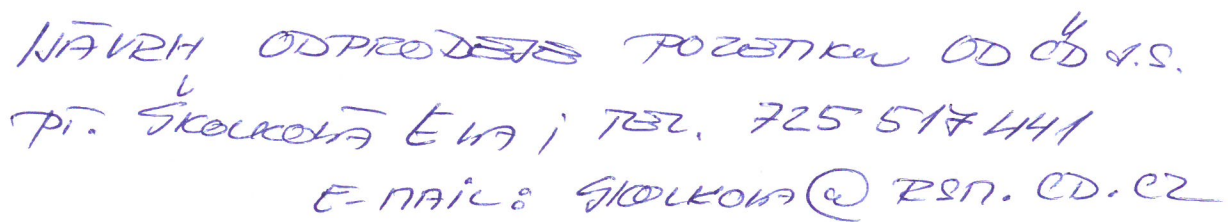 NÁVRH ODPRODEJE POZEMKU OD ČD a.s.
PÍ. ŠKOLKOVÁ EVA; TEL. 725 517 441
E-MAIL: SKOLKOVA@RSM.CD.CZ